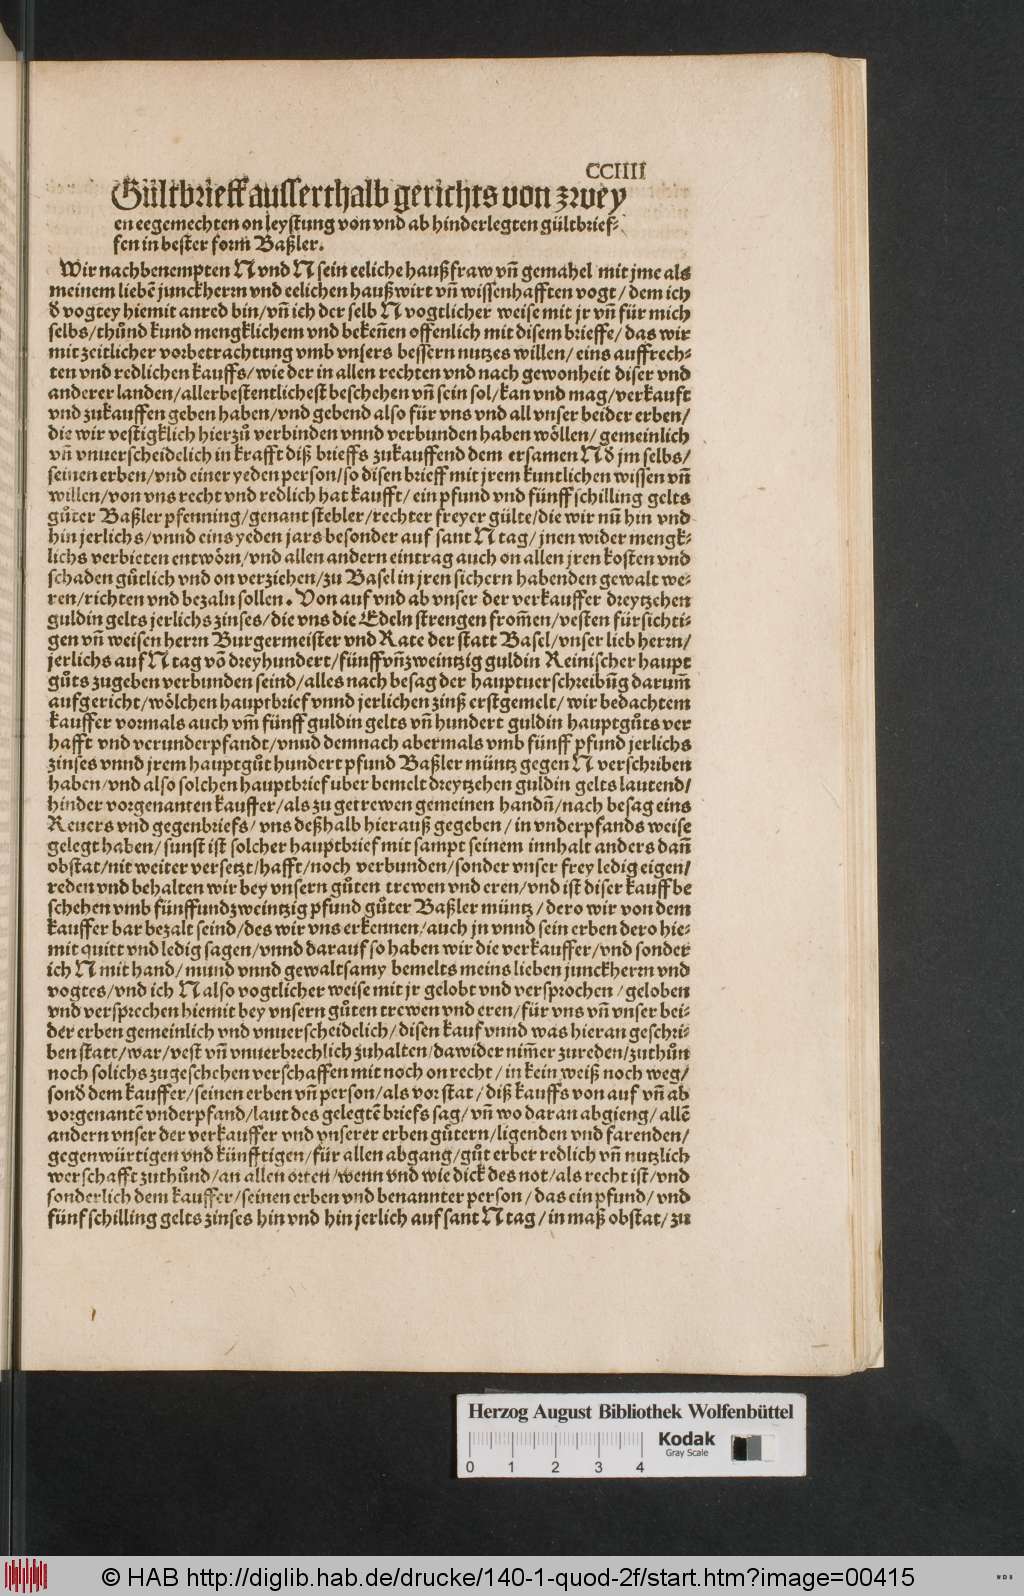 CCIIII
Gültbrieff ausserthalb gerichts von zwey
en eegemechten on leystung von vnd ab hinderlegten gültbrief⸗
fen in bester form̃ Baßler.
Wir nachbenempten N vnd N sein eeliche haußfraw vñ gemahel mit jme als
meinem liebẽ junckherrn vnd eelichen haußwirt vñ wissenhafften vogt / dem ich
ð vogtey hiemit anred bin/vñ ich der selb N vogtlicher weise mit jr vñ für mich
selbs/thůnd kund mengklichem vnd bekeñen offenlich mit disem brieffe/ das wir
mit zeitlicher vorbetrachtung vmb vnsers bessern nutzes willen/ eins auffrech⸗
ten vnd redlichen kauffs/wie der in allen rechten vnd nach gewonheit diser vnd
anderer landen/allerbestentlichest beschehen vñ sein sol/kan vnd mag/verkaufft
vnd zukauffen geben haben/vnd gebend also für vns vnd all vnser beider erben/
die wir vestigklich hierzů verbinden vnnd verbunden haben wöllen/ gemeinlich
vñ vnuerscheidelich in krafft diß brieffs zukauffend dem ersamen N ð jm selbs/
seinen erben/vnd einer yeden person/so disen brieff mit jrem kuntlichen wissen vñ
willen/von vns recht vnd redlich hat kaufft/ ein pfund vnd fünff schilling gelts
gůter Baßler pfenning/genant stebler/rechter freyer gülte/die wir nũ hin vnd
hin jerlichs/vnnd eins yeden jars besonder auf sant N tag/ jnen wider mengk⸗
lichs verbieten entwörn/vnd allen andern eintrag auch on allen jren kosten vnd
schaden gůtlich vnd on verziehen/zu Basel in jren sichern habenden gewalt we⸗
ren/richten vnd bezaln sollen. Von auf vnd ab vnser der verkauffer dreytzehen
guldin gelts jerlichs zinses/die vns die Edeln strengen from̃en/vesten fürsichti⸗
gen vñ weisen herrn Burgermeister vnd Rate der statt Basel/vnser lieb herrn/
jerlichs auf N tag võ dreyhundert/fünffvñzweintzig guldin Reinischer haupt
gůts zugeben verbunden seind/alles nach besag der hauptuerschreibũg darum̃
aufgericht/wölchen hauptbrief vnnd jerlichen zinß erstgemelt/ wir bedachtem
kauffer vormals auch vm̃ fünff guldin gelts vñ hundert guldin hauptgůts ver
hafft vnd verunderpfandt/vnnd demnach abermals vmb fünff pfund jerlichs
zinses vnnd jrem hauptgůt hundert pfund Baßler müntz gegen N verschriben
haben/vnd also solchen hauptbrief uber bemelt dreytzehen guldin gelts lautend/
hinder vorgenanten kauffer/als zu getrewen gemeinen handñ/nach besag eins
Reuers vnd gegenbriefs/ vns deßhalb hierauß gegeben / in vnderpfands weise
gelegt haben/sunst ist solcher hauptbrief mit sampt seinem innhalt anders dañ
obstat/nit weiter versetzt/hafft/noch verbunden/sonder vnser frey ledig eigen/
reden vnd behalten wir bey vnsern gůten trewen vnd eren/vnd ist diser kauff be
schehen vmb fünffundzweintzig pfund gůter Baßler müntz / dero wir von dem
kauffer bar bezalt seind/des wir vns erkennen/auch jn vnnd sein erben dero hie⸗
mit quitt vnd ledig sagen/vnnd darauf so haben wir die verkauffer/vnd sonder
ich N mit hand/mund vnnd gewaltsamy bemelts meins lieben junckherrn vnd
vogtes/vnd ich N also vogtlicher weise mit jr gelobt vnd versprochen /geloben
vnd versprechen hiemit bey vnsern gůten trewen vnd eren/für vns vñ vnser bei⸗
der erben gemeinlich vnd vnuerscheidelich/disen kauf vnnd was hieran geschri⸗
ben statt/war/vest vñ vnuerbrechlich zuhalten/dawider nim̃er zureden/zuthůn
noch solichs zugeschehen verschaffen mit noch on recht / in kein weiß noch weg/
sonð dem kauffer/seinen erben vñ person/als vor stat / diß kauffs von auf vñ ab
vorgenantẽ vnderpfand/laut des gelegtẽ briefs sag/vñ wo daran abgieng/allẽ
andern vnser der verkauffer vnd vnserer erben gůtern/ligenden vnd farenden/
gegenwürtigen vnd künfftigen/für allen abgang/gůt erber redlich vñ nutzlich
werschafft zuthůnd/an allen orten/wenn vnd wie dick des not/als recht ist/vnd
sonderlich dem kauffer/seinen erben vnd benannter person / das ein pfund/ vnd
fünf schilling gelts zinses hin vnd hin jerlich auf sant N tag / in maß obstat/ zu
Herzog August Bibliothek Wolfenbüttel
Kodak
Gray Scale
0 1 2 3 4
© HAB http://diglib.hab.de/drucke/140-1-quod-2f/start.htm?image=00415